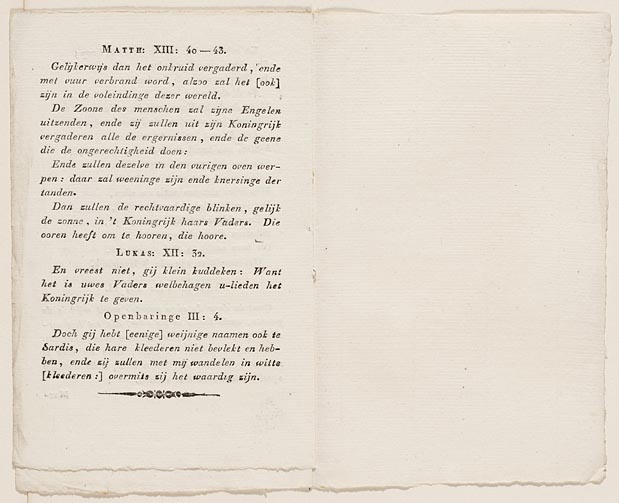 MATTH: XIII: 40—43.
Gelijkerwijs dan het onkruid vergaderd, ende
met vuur verbrand word, alzoo zal het [ook]
zijn in de voleindinge dezer wereld.
De Zoone des menschen zal zijne Engelen
uitzenden, ende zij zullen uit zijn Koningrijk
vergaderen alle de ergernissen, ende de geene
die de ongerechtigheid doen:
Ende zullen dezelve in den vurigen oven wer-
pen: daar zal weeninge zijn ende knersinge der
tanden.
Dan zullen de rechtvaardige blinken, gelijk
de zonne, in 't Koningrijk haars Vaders. Die
ooren heeft om te hooren, die hoore.
LUKAS: XII: 32.
En vreest niet, gij klein kuddeken: Want
het is uwes Vaders welbehagen u-lieden het
Koningrijk te geven.
Openbaringe III: 4.
Doch gij hebt [eenige] weijnige naamen ook te
Sardis, die hare kleederen niet bevlekt en heb-
ben, ende zij zullen met mij wandelen in witte
[kleederen:] overmits zij het waardig zijn.